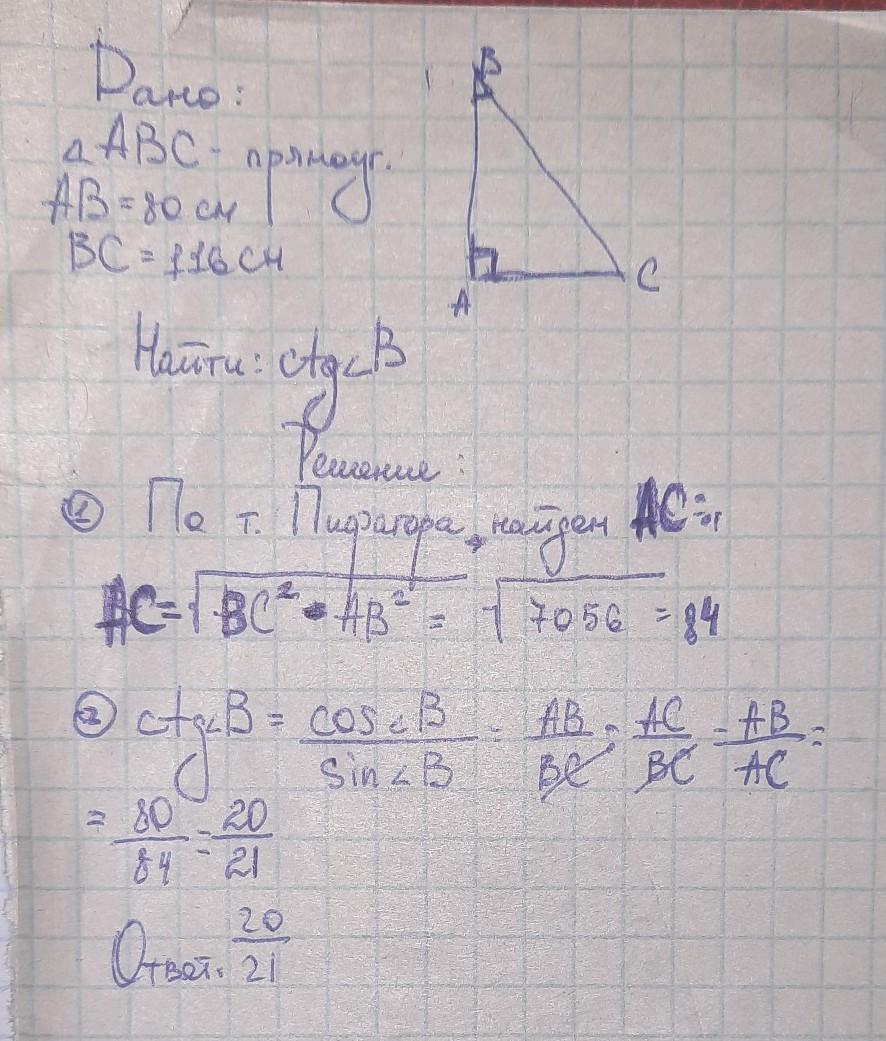 Дано:
B
△ABC - прямоуг.
AB = 80 см
BC = 116 см
A
C
Найти: ctg∠B
Решение:
① По т. Пифагора найдем AC:
AC = √BC² - AB² = √7056 = 84
② ctg∠B = cos∠B / sin∠B = AB/BC : AC/BC = AB/AC =
= 80/84 = 20/21
Ответ: 20/21